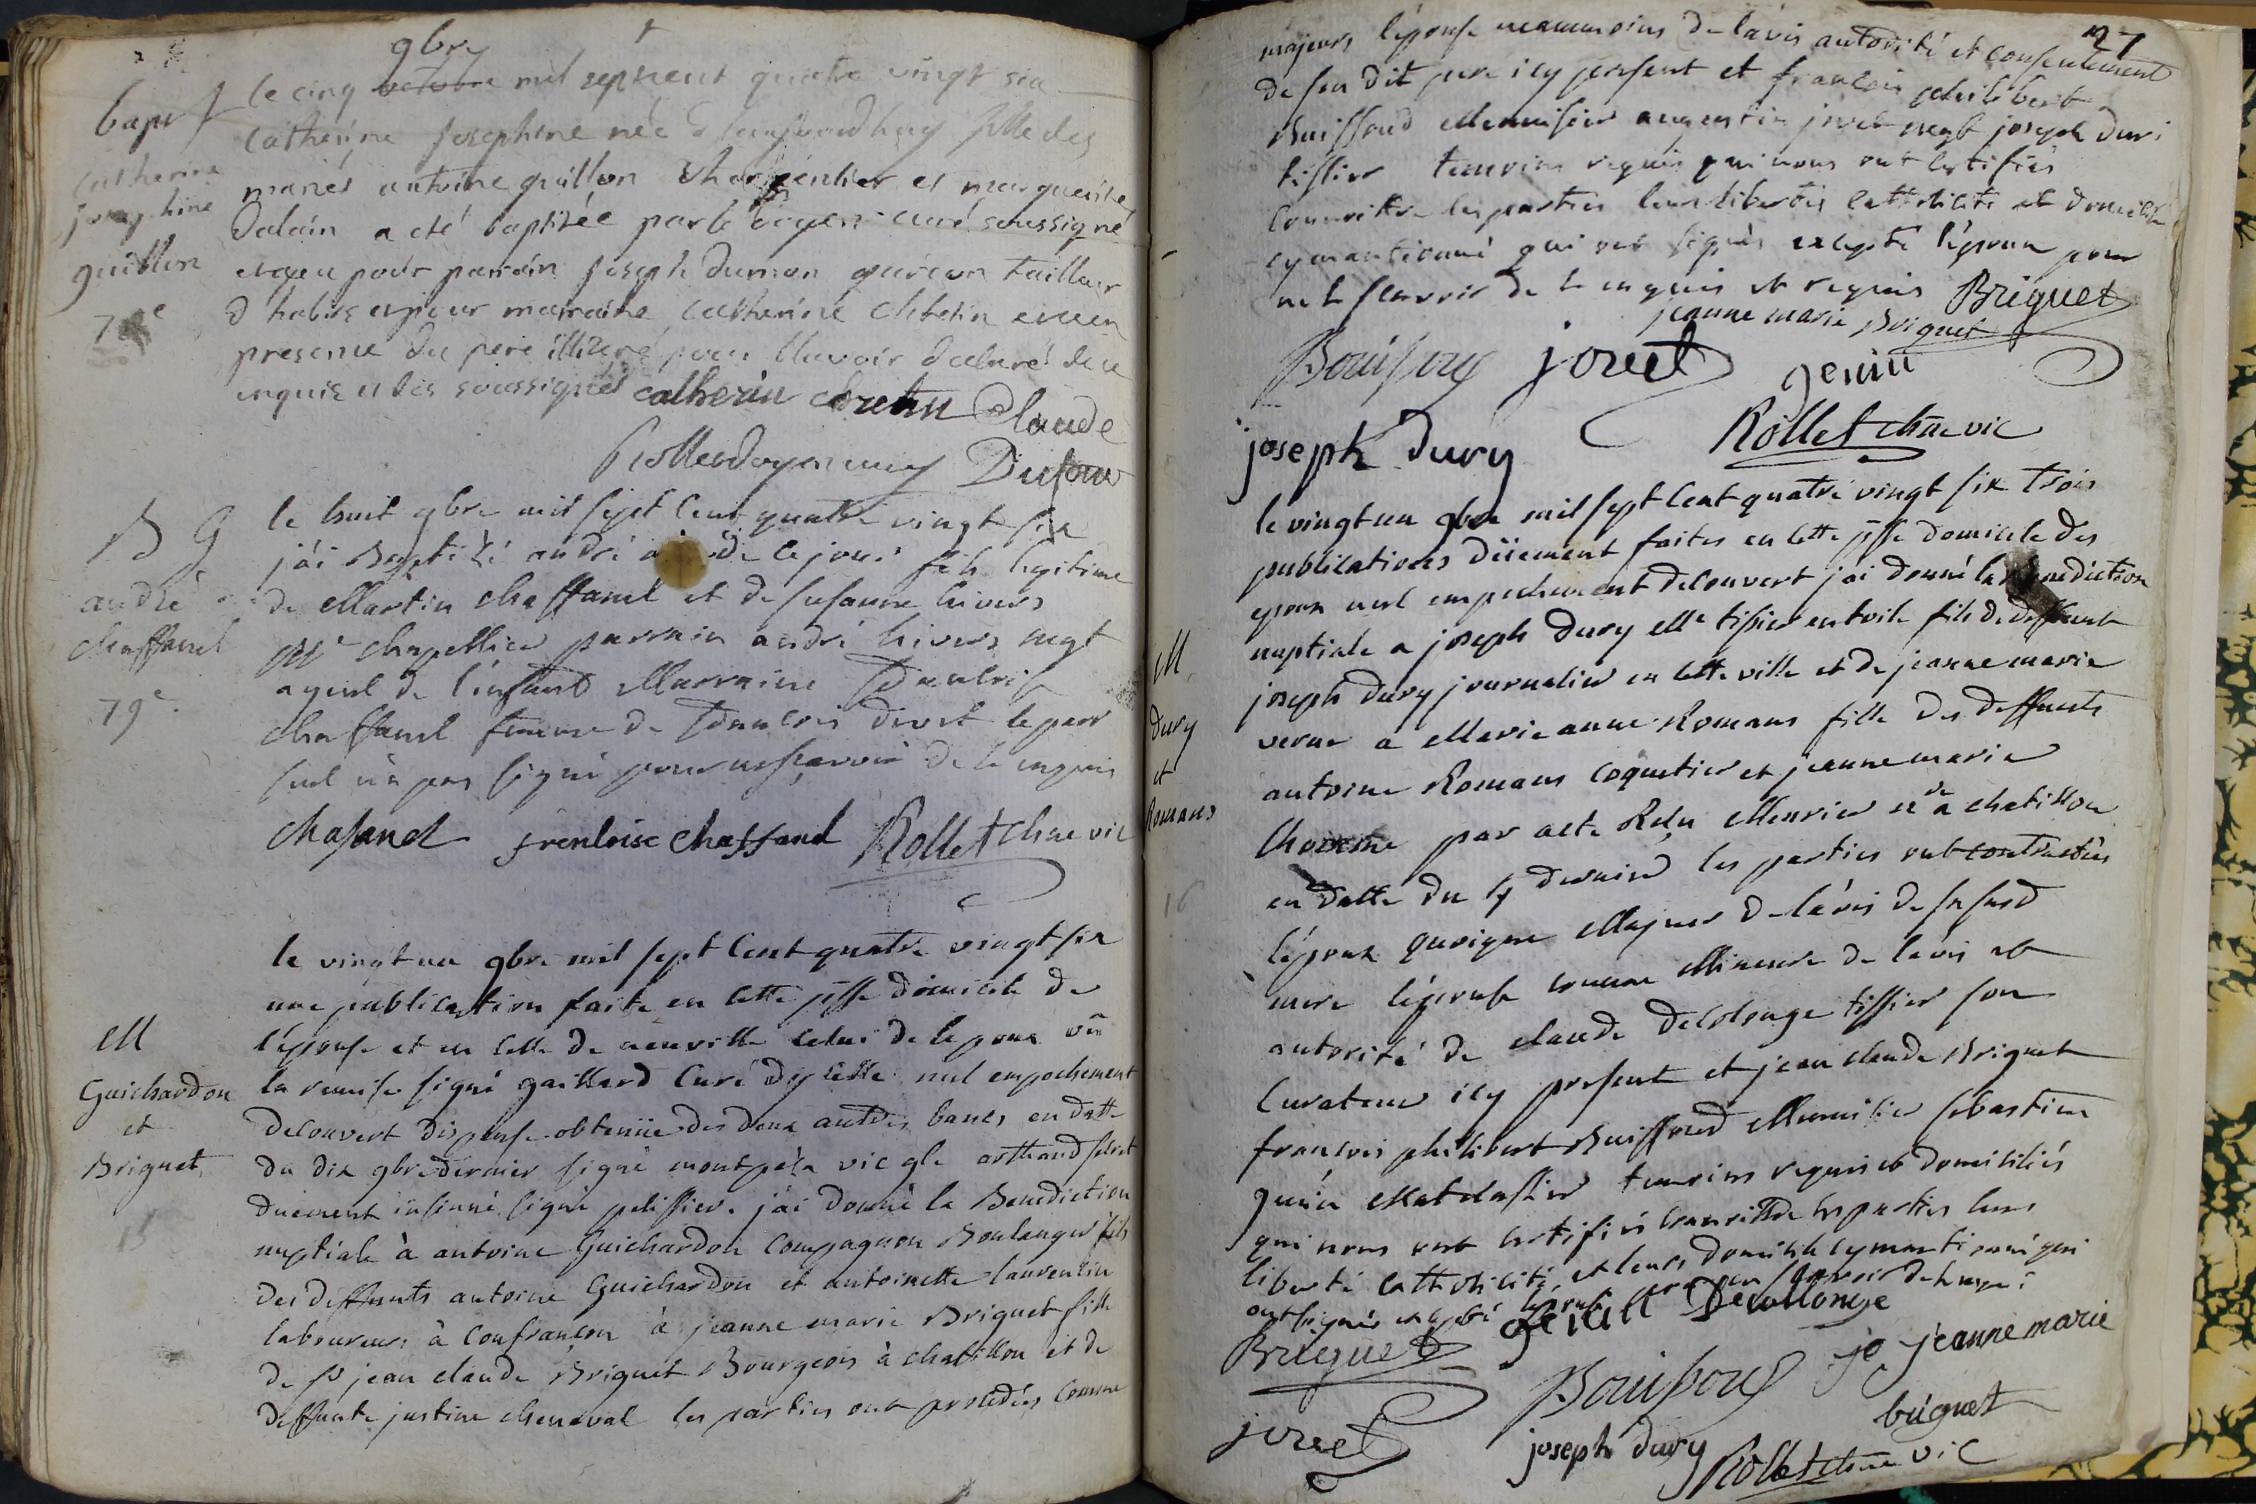 9bre
bapt le cinq octobre mil sept cent quatre vingt six
catherine josephine née d'aujourdhuy fille des
catherine
josephine
guillon
78e
mariés antoine guillon charpentier et marguerite
Dalain a eté baptisée par le doyen curé soussigné
et a eu pour parrain joseph dumon garcon tailleur
d'habits et pour marraine catherine chretin et en
presence du pere illiteré pour l'avoir declaré de ce
enquis et des soussignés catherin chretin Claude
Rollet doyen curé Dufour
B G
andré
chaffanel
79e
le huit 9bre mil sept cent quatre vingt six
j'ai Baptizé andré né de ce jour fils legitime
de Martin chaffanel et de susanne hivers
Me chapellier parrain andré hivers negt
ayeul de l'enfant Marraine
chaffanel femme de francois divet le parr
seul n'a pas signé pour ne scavoir de ce enquis
chafanel frenloise chaffand Rollet chne vic
M
Guichardon
et
Briguet
15
le vingt un 9bre mil sept cent quatre vingt six
une publication faite en cette psse domicile de
l'epouse et en celle de neuville celui de l'epoux vu
la remise signé gaillard curé dy celle nul empechement
decouvert dispense obtenüe des deux autres bancs en datte
du dix 9bre dernier signé montpela vic gle arthaud secret
duement insinué signé pelissier. j'ai donné la Benediction
nuptiale à antoine Guichardon compagnon Boulanger fils
des deffunts antoine Guichardon et antoinette laurencin
laboureurs à confrancon à jeanne marie Briguet fille
de sr jean claude Briguet Bourgeois à chatillon et de
deffunte justine cheneval les parties ont procedés comme
27
majeurs l'epouse neanmoins de l'avis autorité et consentement
de son dit pere icy present et francois philibert
Buiffoud Menuisier augustin jovet negt joseph duri
tissier temoins requis qui nous ont certifiés
connoitre les parties leurs libertés catholicité et domicile
cy mentionné qui ont signés excepté l'epoux pour
ne le scavoir de ce enquis et requis Briguet
jeanne marie Briguet
Bouifoug jovet genin
joseph dury Rollet chne vic
M
Dury
et
Romans
16
le vingt un 9bre mil sept cent quatre vingt six trois
publications düement faites en cette psse domicile des
epoux nul empechement decouvert j'ai donné la Benediction
nuptiale a joseph Dury Me tissier en toile fils de deffunt
joseph Dury journalier en cette ville et de jeanne marie
verne a Marie anne Romans fille des deffunts
antoine Romans coquetier et jeanne marie
par acte Recu Meunier nre a chatillon
en datte du 4 dernier les parties ont contractées
l'epoux quoique Majeur de l'avis de sa susd
mere l'epouse comme Mineure de l'avis et
autorité de claude Decolonge tissier son
curateur icy present et jean claude Briguet
francois philibert Buiffoud Menuisier sebastien
genin Matelassier temoins requis et domiciliés
qui nous ont certifiés connoittre les parties leurs
liberté catholicité et leurs domicile cy mentionné qui
ont signés excepté l'epouse pour ne scavoir de ce enquis
Briguet genin Decollonge
Bouifoug je jeanne marie
briguet
jovet joseph dury Rollet chne vic